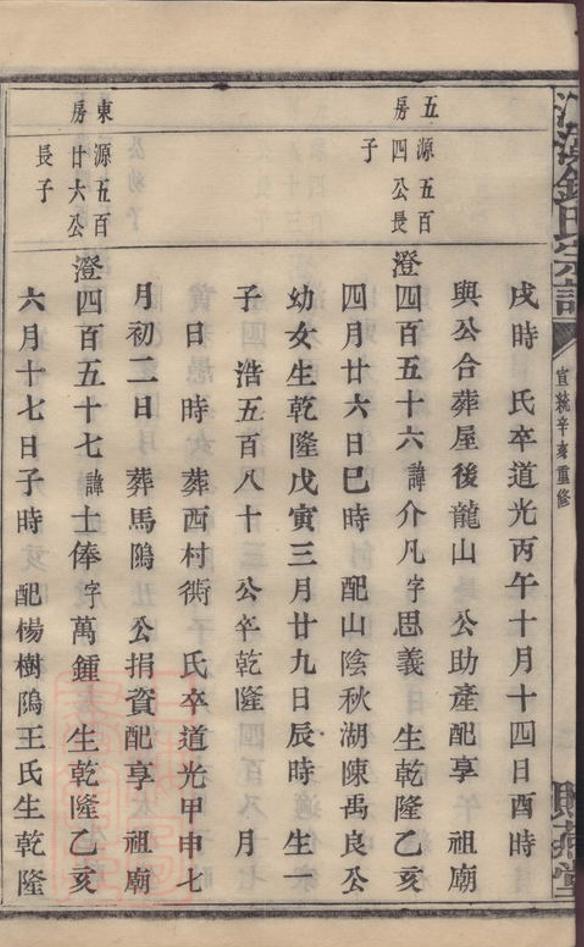 氏宗譜
宣統辛亥重修
堂
戌時 氏卒道光丙午十月十四日酉時
與公合葬屋後龍山 公助產配享 祖廟
五
房
源五百
四公長
子
澄四百五十六諱介凡字思義 生乾隆乙亥
四月廿六日巳時 配山陰秋湖陳禹良公
幼女生乾隆戊寅三月廿九日辰時 生一
子 浩五百八十 公卒乾隆 月
日 時 葬西村衖 氏卒道光甲申七
月初二日 葬馬隖 公捐資配享 祖廟
東
房
源五百
廿六公
長子
澄四百五十七諱士俸字萬鍾 生乾隆乙亥
六月十七日子時 配楊樹隖王氏生乾隆